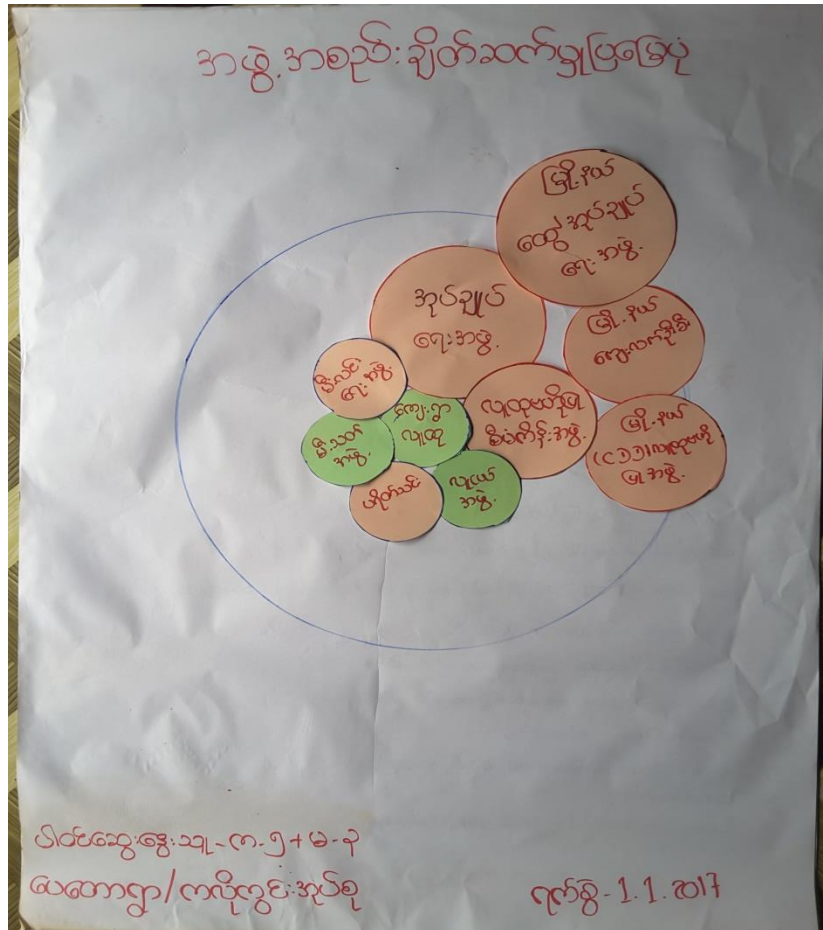 အဖွဲ့အစည်းချိတ်ဆက်မှုပြမြေပုံ
မြို့နယ်
ထွေ/အုပ်ချုပ်
ရေးအဖွဲ့
အုပ်ချုပ်
ရေးအဖွဲ့
မြို့နယ်
ကျေးလက်ဦးစီး
မီးလင်း
ရေးအဖွဲ့
ကျေးရွာ
လူထု
လူထုဗဟိုပြု
စီမံကိန်းအဖွဲ့
မြို့နယ်
(CDD)လူထုဗဟို
ပြုအဖွဲ့
မီးသတ်
အဖွဲ့
လူငယ်
အဖွဲ့
ပါဝင်ဆွေးနွေးသူ-က-၅+မ-၃
ပေတောရွာ/ကလိုကွင်းအုပ်စု
ရက်စွဲ-1.1.2017